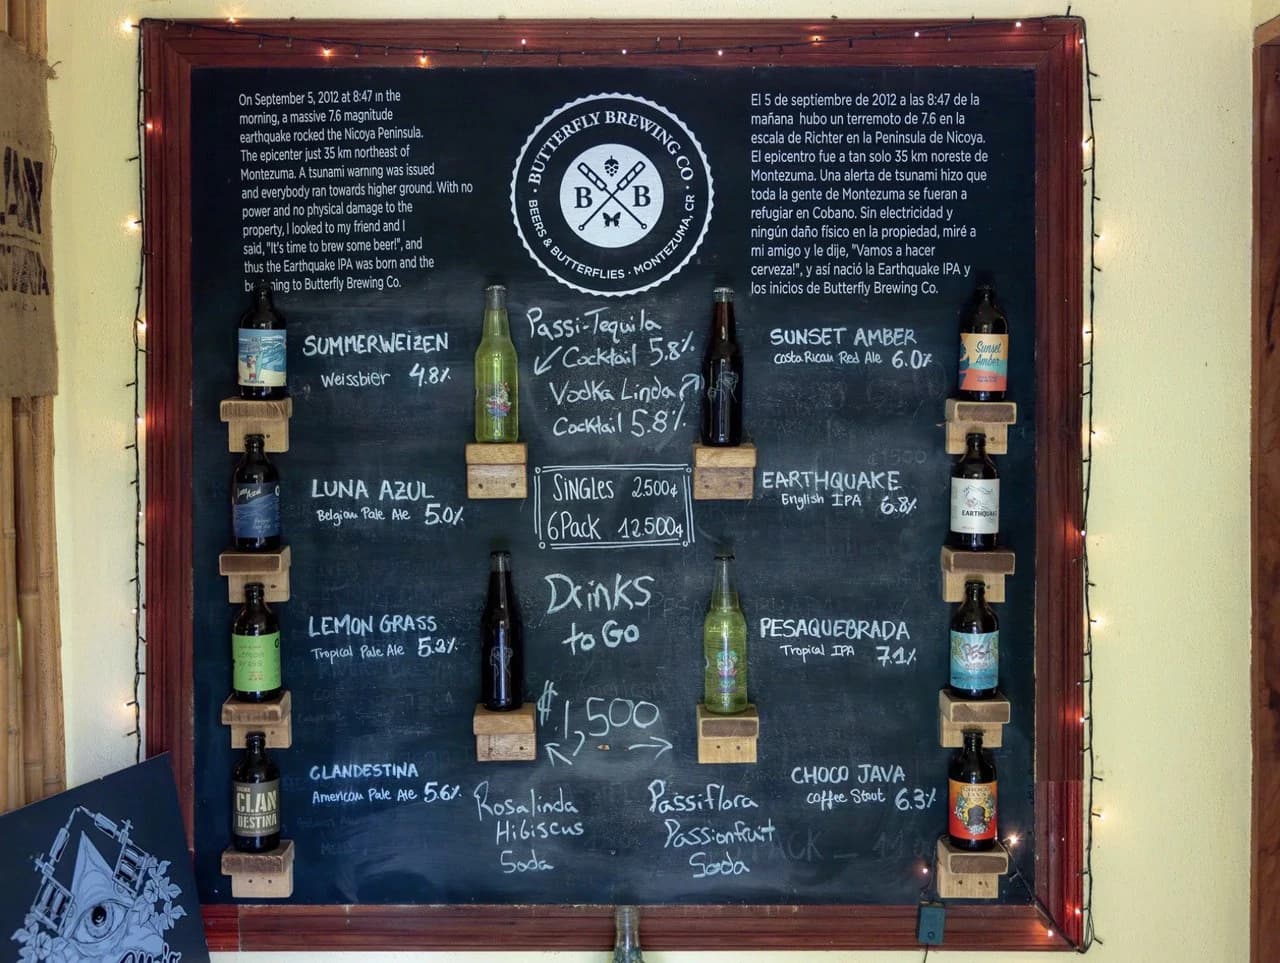 On September 5, 2012 at 8:47 in the
morning, a massive 7.6 magnitude
earthquake rocked the Nicoya Peninsula.
The epicenter just 35 km northeast of
Montezuma. A tsunami warning was issued
and everybody ran towards higher ground. With no
power and no physical damage to the
property, I looked to my friend and I
said, "It's time to brew some beer!", and
thus the Earthquake IPA was born and the
to Butterfly Brewing Co.
BUTTERFLY BREWING CO
B B
BEERS & BUTTERFLIES · MONTEZUMA, CR
El 5 de septiembre de 2012 a las 8:47 de la
mañana hubo un terremoto de 7.6 en la
escala de Richter en la Peninsula de Nicoya.
El epicentro fue a tan solo 35 km noreste de
Montezuma. Una alerta de tsunami hizo que
toda la gente de Montezuma se fueran a
refugiar en Cobano. Sin electricidad y
ningún daño físico en la propiedad, miré a
mi amigo y le dije, "Vamos a hacer
cerveza!", y así nació la Earthquake IPA y
los inicios de Butterfly Brewing Co.
SUMMERWEIZEN
Weissbier 4.8%
LUNA AZUL
Belgian Pale Ale 5.0%
LEMON GRASS
Tropical Pale Ale 5.2%
CLANDESTINA
American Pale Ale 5.6%
Passi-Tequila
Cocktail 5.8%
Vodka Linda
Cocktail 5.8%
SINGLES 2.500¢
6Pack 12.500¢
Drinks
to Go
₡1,500
Rosalinda
Hibiscus
Soda
Passiflora
Passionfruit
Soda
SUNSET AMBER
Costa Rican Red Ale 6.0%
EARTHQUAKE
English IPA 6.8%
PESAQUEBRADA
Tropical IPA 7.1%
CHOCO JAVA
Coffee Stout 6.3%
Luna Azul
CLAN
DESTINA
Sunset
Amber
EARTHQUAKE
PESA